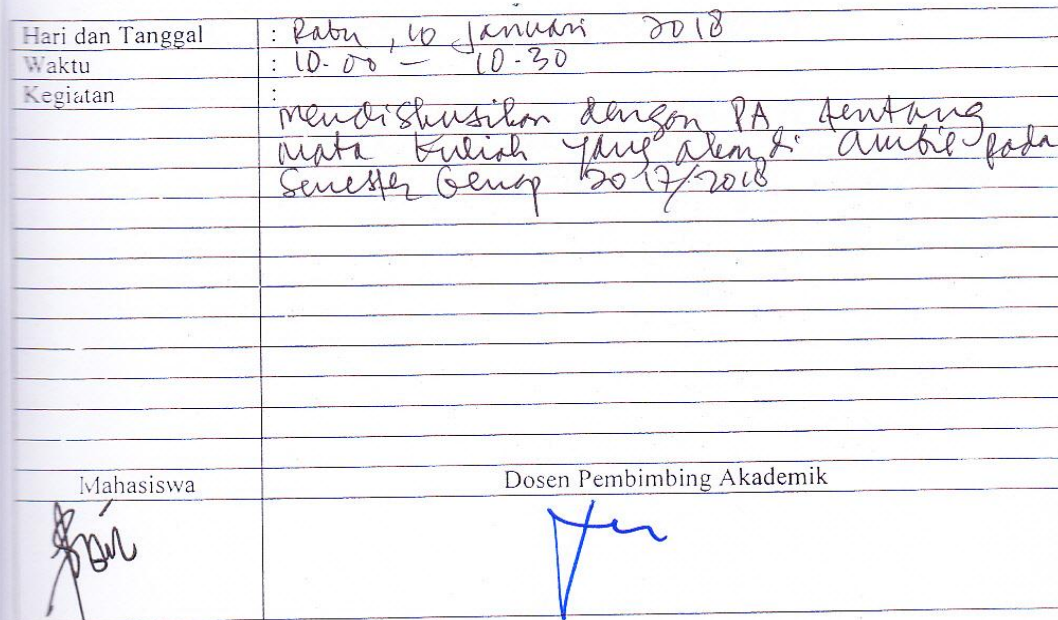 Hari dan Tanggal : Rabu, 10 Januari 2018
Waktu : 10.00 – 10.30
Kegiatan :
mendiskusikan dengan PA tentang
mata kuliah yang akan di ambil pada
Semester Genap 2017/2018
Mahasiswa Dosen Pembimbing Akademik